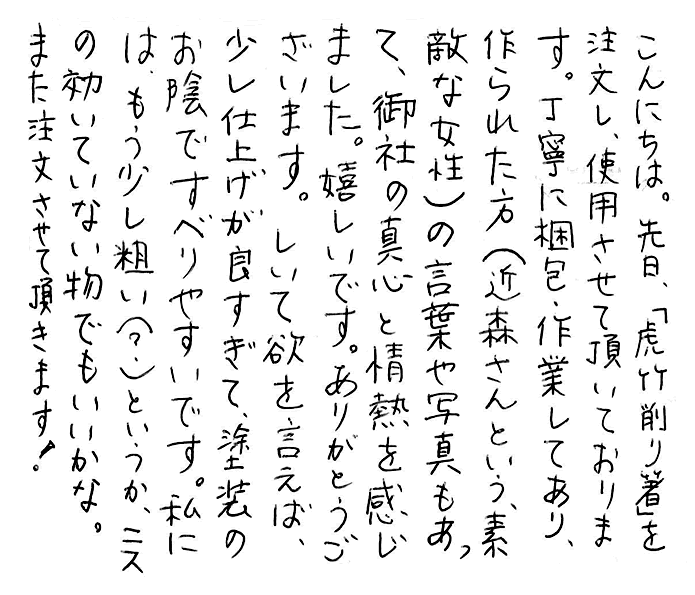 こんにちは。先日、「虎竹削り箸」を
注文し、使用させて頂いておりま
す。丁寧に梱包・作業してあり、
作られた方（近森さんという、素
敵な女性）の言葉や写真もあっ
て、御社の真心と情熱を感じ
ました。嬉しいです。ありがとうご
ざいます。しいて欲を言えば、
少し仕上げが良すぎて、塗装の
お陰ですべりやすいです。私に
は、もう少し粗い（？）というか、ニス
の効いていない物でもいいかな。
また注文させて頂きます！